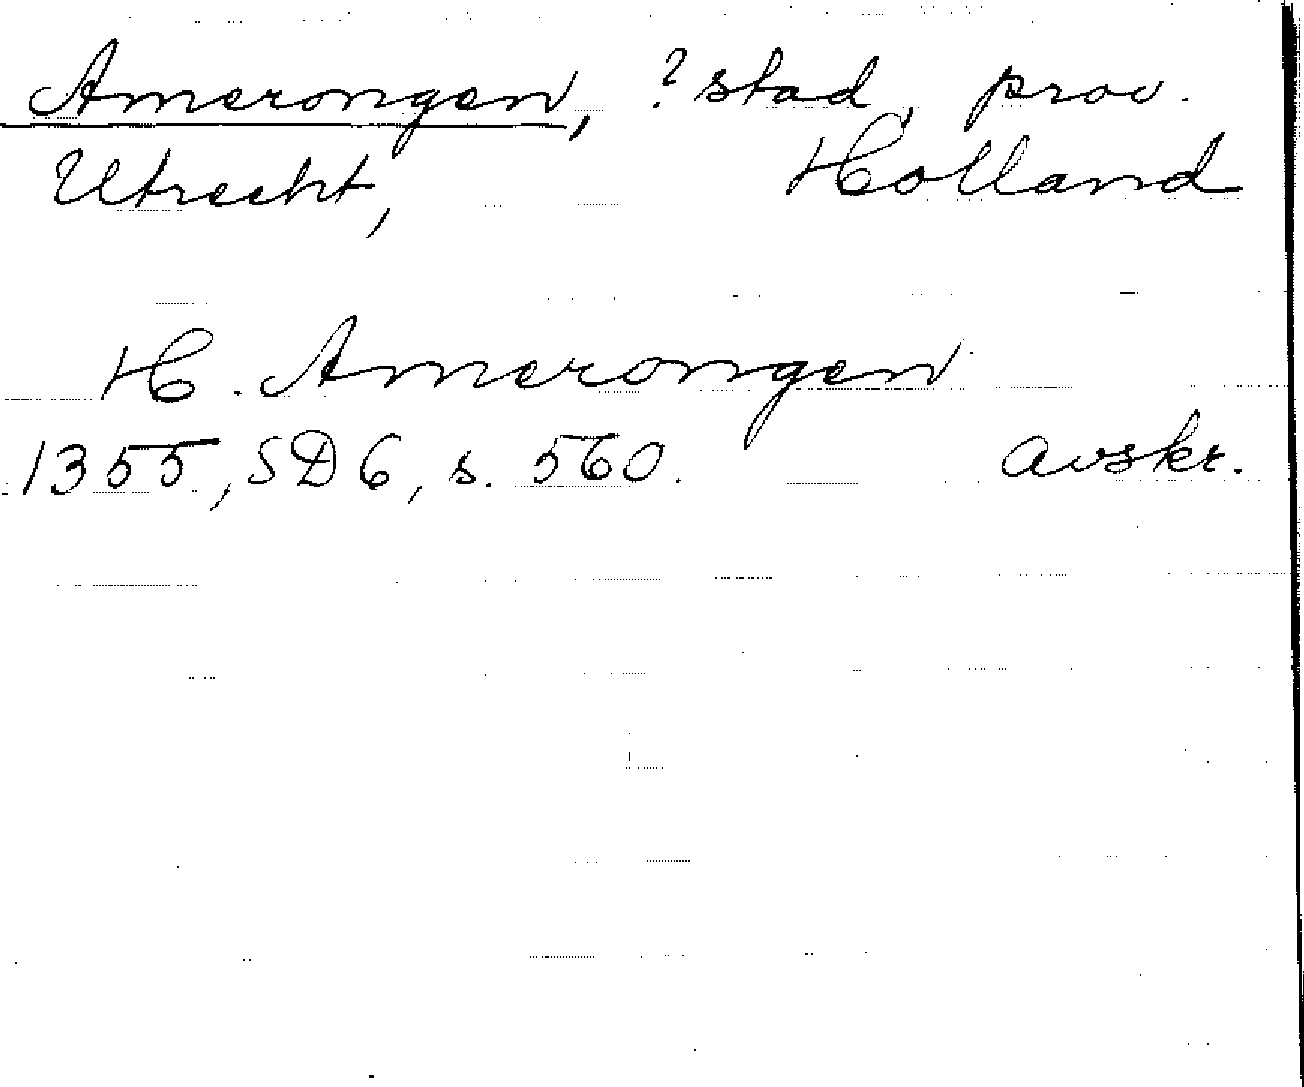 Amerongen, ? stad, prov.
Utrecht, Holland
H. Amerongen
1355, SD 6, s. 560. avskr.